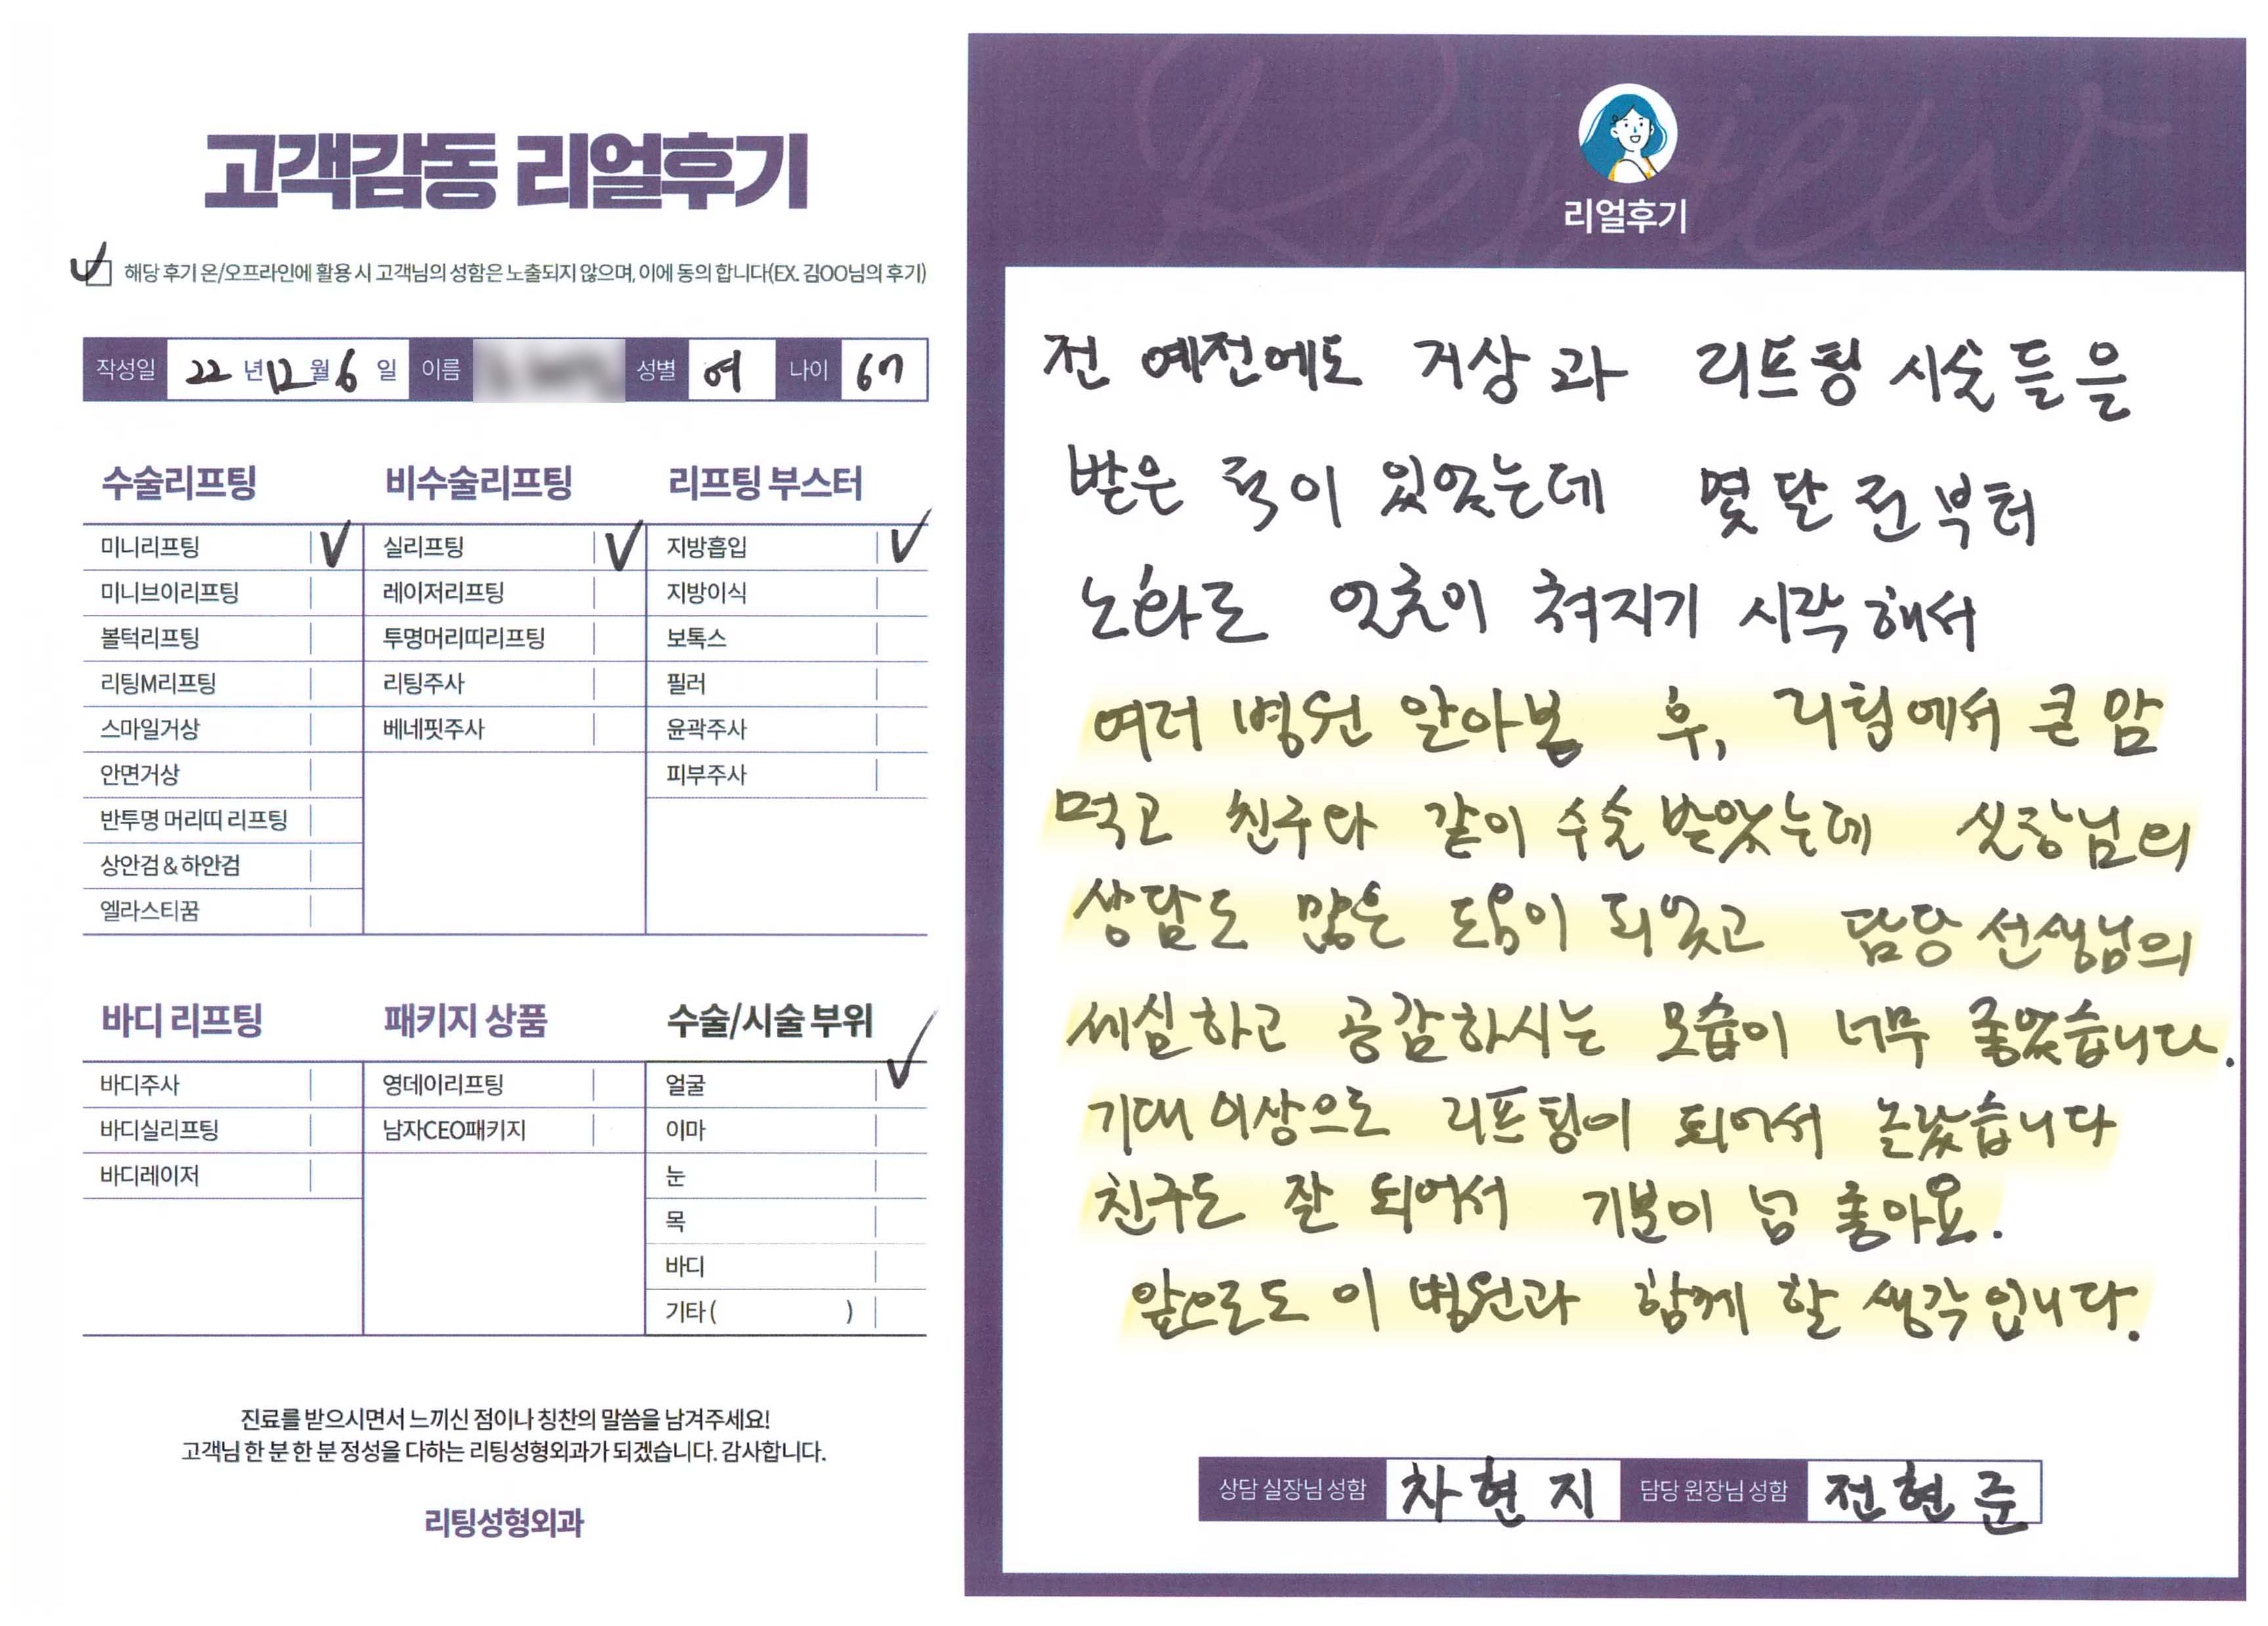 고객감동 리얼후기
해당 후기 온/오프라인에 활용 시 고객님의 성함은 노출되지 않으며, 이에 동의 합니다(EX. 김OO님의 후기)
작성일 22 년 12 월 6 일 이름 성별 여 나이 67
수술리프팅 비수술리프팅 리프팅 부스터
미니리프팅 V 실리프팅 V 지방흡입 V
미니브이리프팅 레이저리프팅 지방이식
볼턱리프팅 투명머리띠리프팅 보톡스
리팅M리프팅 리팅주사 필러
스마일거상 베네핏주사 윤곽주사
안면거상 피부주사
반투명 머리띠 리프팅
상안검 & 하안검
엘라스티꿈
바디 리프팅 패키지 상품 수술/시술 부위
바디주사 영데이리프팅 얼굴 V
바디실리프팅 남자CEO패키지 이마
바디레이저 눈
목
바디
기타 ( )
진료를 받으시면서 느끼신 점이나 칭찬의 말씀을 남겨주세요!
고객님 한 분 한 분 정성을 다하는 리팅성형외과가 되겠습니다. 감사합니다.
리팅성형외과
Review
리얼후기
전 예전에도 거상과 리프팅 시술들을
받은 적이 있었는데 몇달전부터
노화로 얼굴이 쳐지기 시작해서
여러 병원 알아본 후, 리팅에서 큰 맘
먹고 친구와 같이 수술 받았는데 실장님의
상담도 많은 도움이 되었고 담당 선생님의
세심하고 공감하시는 모습이 너무 좋았습니다.
기대 이상으로 리프팅이 되어서 놀랐습니다
친구도 잘 되어서 기분이 넘 좋아요.
앞으로도 이 병원과 함께 할 생각입니다.
상담 실장님 성함 차현지 담당 원장님 성함 전현준